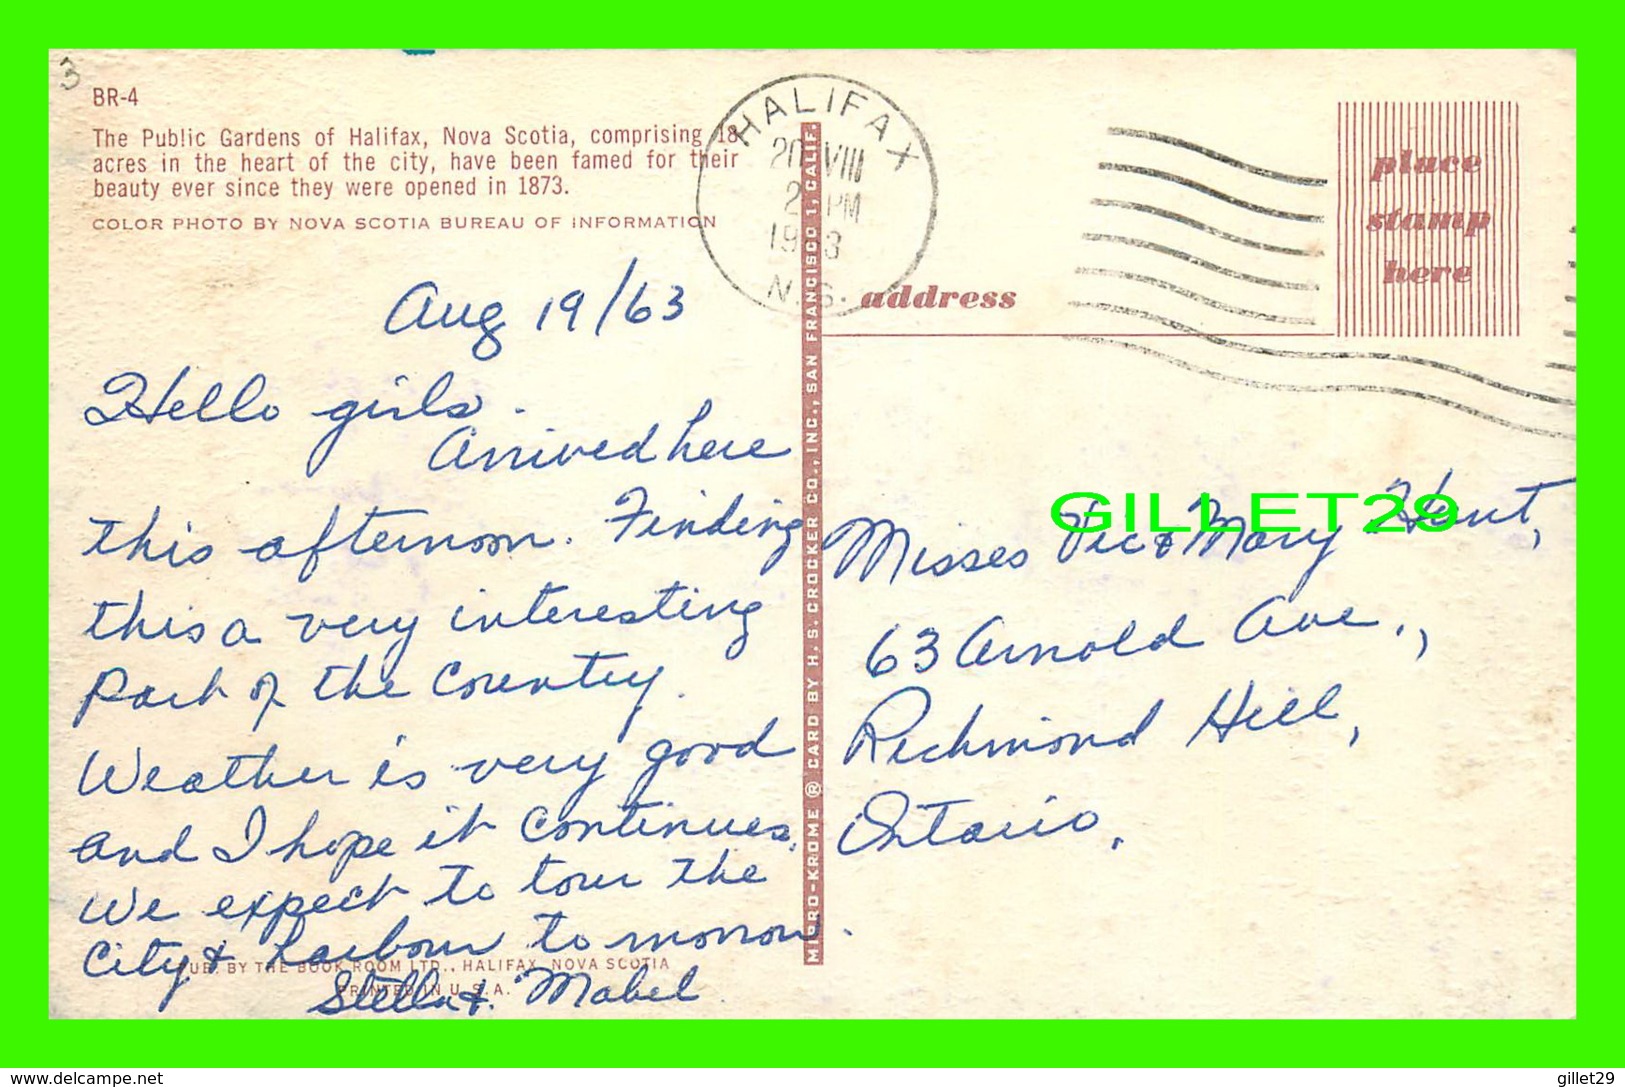 3
BR-4
The Public Gardens of Halifax, Nova Scotia, comprising 18
acres in the heart of the city, have been famed for their
beauty ever since they were opened in 1873.
COLOR PHOTO BY NOVA SCOTIA BUREAU OF INFORMATION
Aug 19/63
Hello girls.
Arrived here
this afternoon. Finding
this a very interesting
part of the Country.
Weather is very good
and I hope it continues.
We expect to tour the
City & harbour tomorrow.
Stella & Mabel
PUB. BY THE BOOK ROOM LTD., HALIFAX, NOVA SCOTIA
PRINTED IN U.S.A.
MICRO-KROME ® CARD BY H. S. CROCKER CO., INC., SAN FRANCISCO 1, CALIF.
HALIFAX
20 VIII
2 PM
19 3
N.S.
place
stamp
here
address
GILLET29
Misses Vic & Mary Hunt,
63 Arnold Ave.,
Richmond Hill,
Ontario.
www.delcampe.net
gillet29